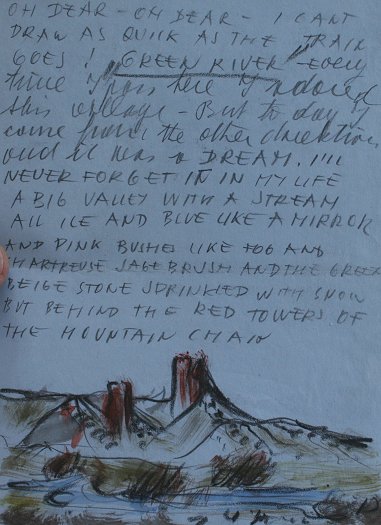 OH DEAR - OH DEAR - I CANT
DRAW AS QUICK AS THE TRAIN
GOES! GREEN RIVER - Every
time I pass here I adored
this village - But to day I
come from the other direktion
and it was a DREAM. I'll
NEVER FORGET IT IN MY LIFE
A BIG VALLEY WITH A STREAM
ALL ICE AND BLUE LIKE A MIRROR
AND PINK BUSHES LIKE FOG AND
CHARTREUSE SAGE BRUSH AND THE GREEN
BEIGE STONE SPRINKLED WITH SNOW
BUT BEHIND THE RED TOWERS OF
THE MOUNTAIN CHAIN